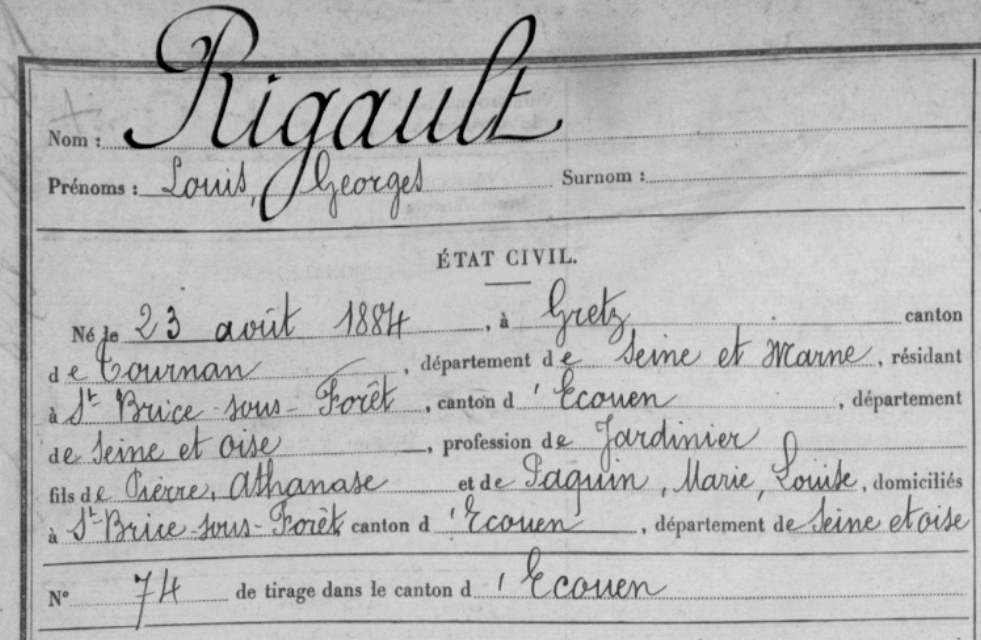 Nom : Rigault
Prénoms : Louis, Georges Surnom :
ÉTAT CIVIL.
Né le 23 août 1884, à Gretz canton
de Tournan, département de Seine et Marne, résidant
à St Brice-sous-Forêt, canton d'Ecouen, département
de Seine et oise, profession de Jardinier
fils de Pierre, Athanase et de Paquin, Marie, Louise, domiciliés
à St-Brice-sous-Forêt canton d'Ecouen, département de Seine et oise
N° 74 de tirage dans le canton d'Ecouen